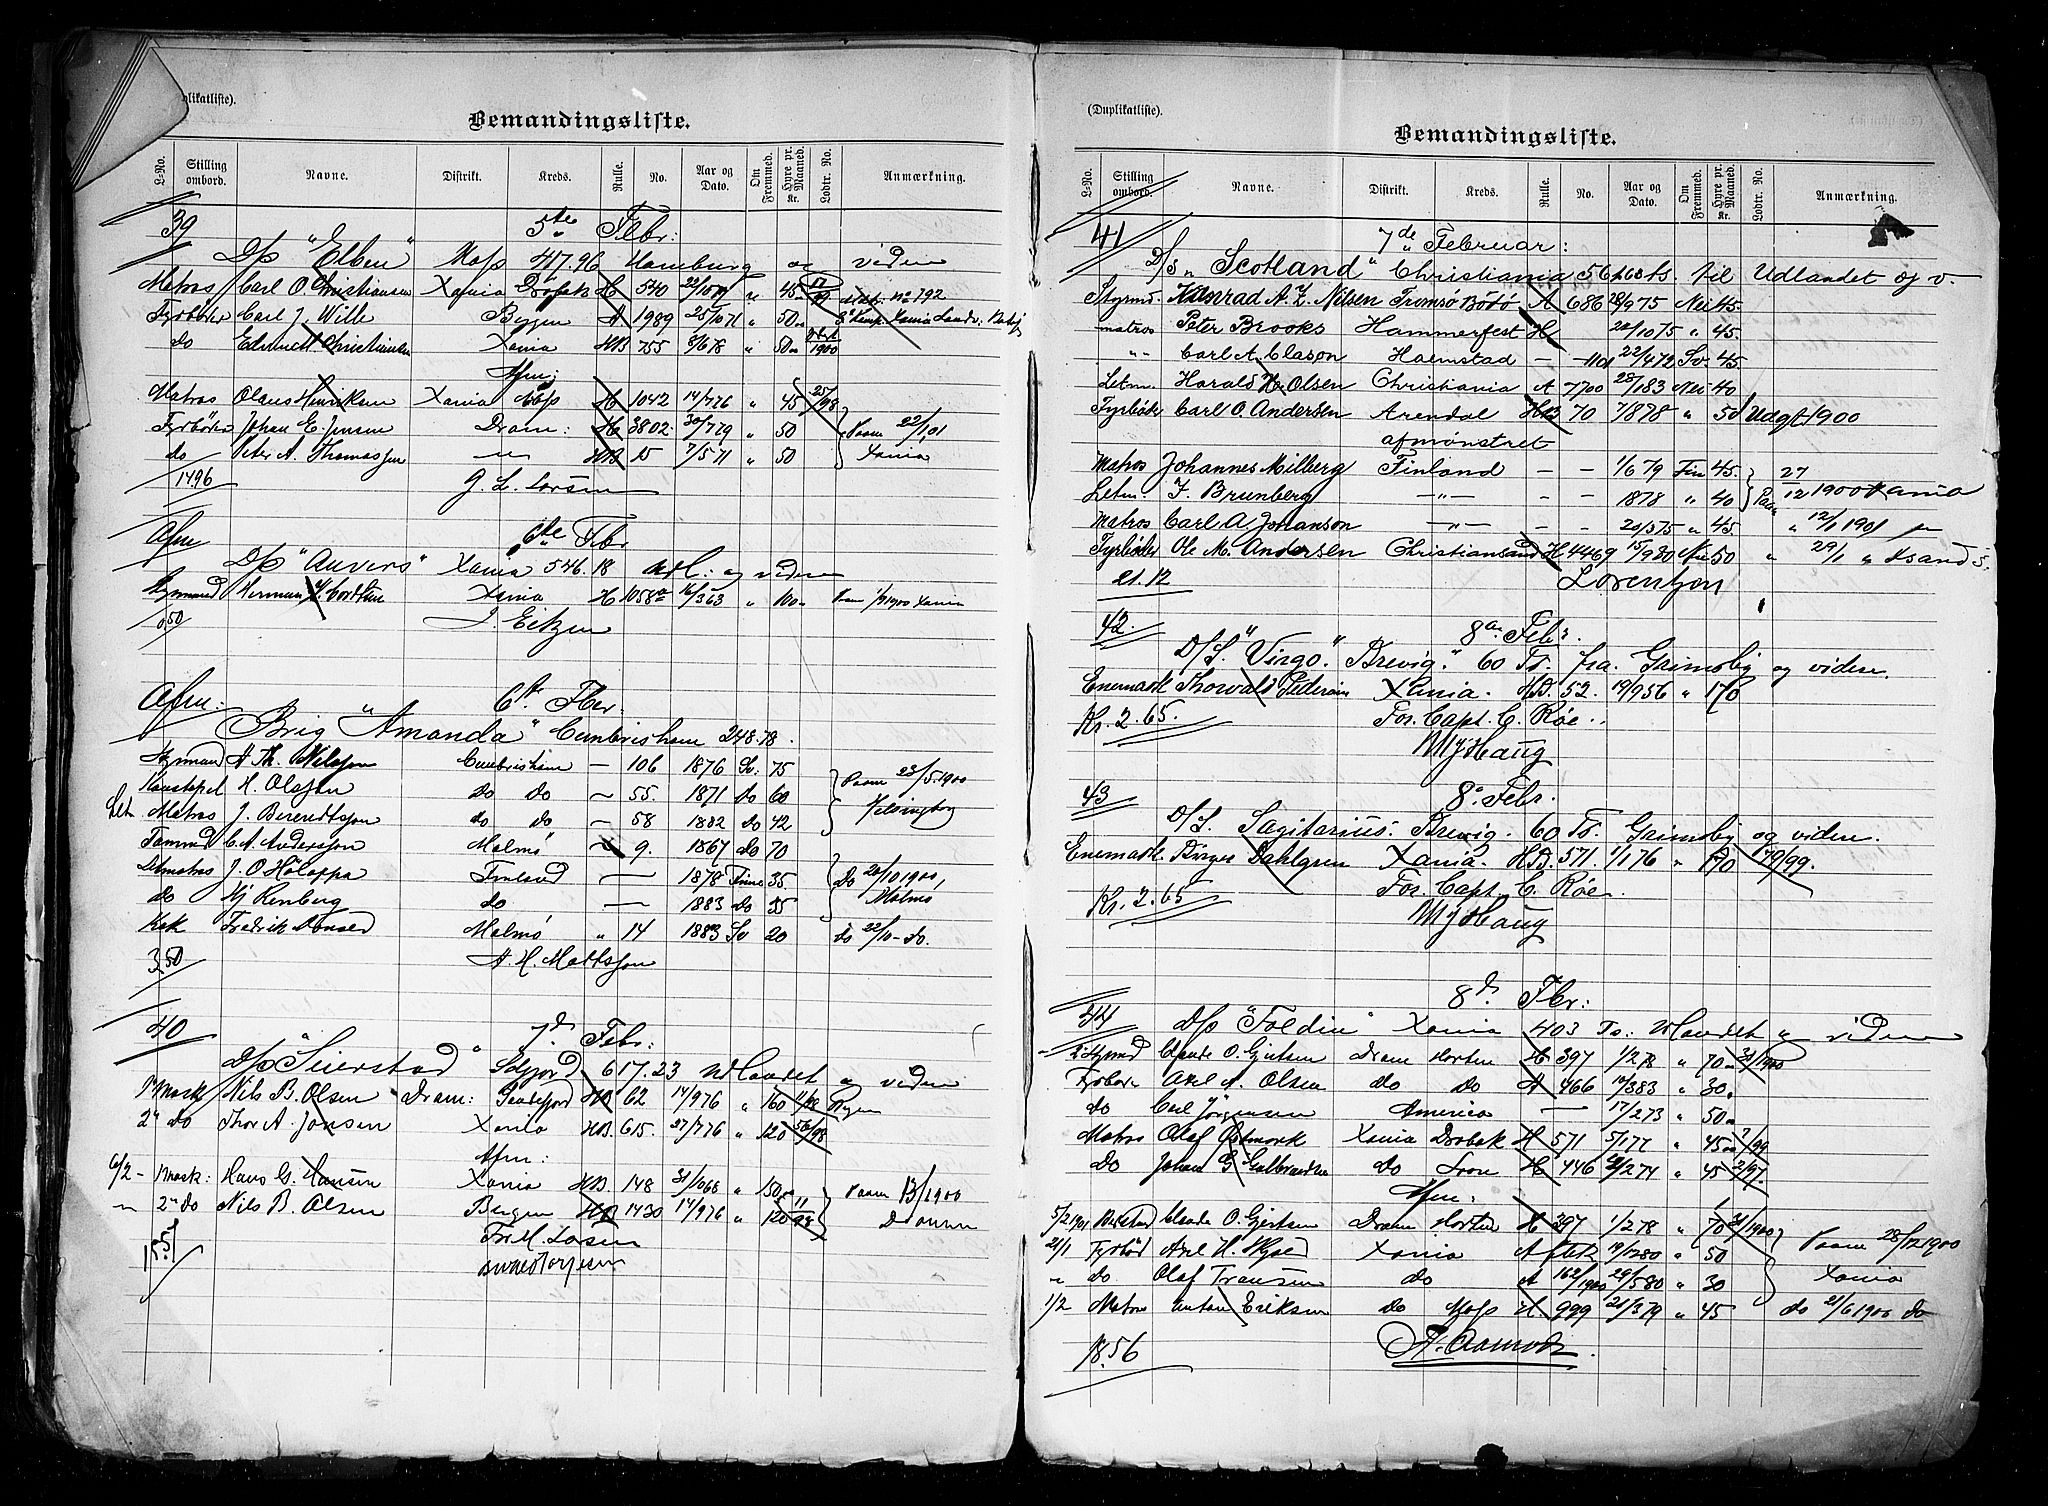 (Duplikatliste).
Bemandingsliste.
L-No. Stilling ombord. Navne. Distrikt. Kreds. Rulle. No. Aar og Dato. Om Fremmed. Hyre pr. Maaned. Kr. Lodtr. No. Anmærkning.
39 5te Febr:
D/s "Elben" Moss 417.96 Hamburg og videre
Matros Carl O. Christiansen Xania Drøbak H 540 45
Fyrbøder Carl J. Wille Bergen A 1989 25/10 71 " 50
do Christiansen Xania HB 755 8/6 78 " 50 1900
Afm:
Matros Olaus Henriksen Xania Moss H 1042 14/7 76 " 45 25/98
Fyrbøder Johan E. Jensen Dram: H 3802 30/7 79 " 50 Paam 22/1 01
do Peter A. Thomassen — " — HB 15 7/5 71 " 50 Xania
14.96 G. L. Larsen
Afm 6te Febr
D/s "Anvers" Xania 546.18 Udl: og videre
Styrmand Herman Xania H 1058a 16/3 63 " 100 Paam 1/3 1900 Xania
0.50 J. Eitzen
Afm: 6te Febr:
Brig "Amanda" Cimbrishamn 248.78.
Styrmand A Th. Nilsson Cimbrishamn — 106 1876 Sv: 75
Konstapel H. Olsson do do — 55. 1871 do 60 Paam 23/5 1900
Let Matros J. Berendtsson do do — 58 1882 do 42 Helsingborg
Tømmd C. A. Andersson Malmö 9. 1867 do 70
Letmatros J. O. Holappa Finland — 1878 Finne 35 Do 20/10 1900,
do Hj Renberg do — 1883 do 35 Malmö
Kok Fredrik Malmö " 14 1883 Sv 20 do 22/10 — do.
3.50 A. H. Mattsson
40 7d Febr:
D/s "Seierstad" 617.23 Udlandet og videre
1 Mask Nils B. Olsen Dram: Sandefjord HB 62 14/9 76 " 160
2n do Thor A. Jansen Xania HB. 615. 27/7 76 " 120 56/98
Afm:
6/2 — 1 Mask: Hans G. Hansen Xania HB. 148 31/10 68 " 150 Paam 13/1 1900
— " — 2n do Nils B. Olsen Bergen HB 1430 14/9 76 " 120 11/98 Drammen
15.51 Fr. M. Larsen
(Duplikatliste).
Bemandingsliste.
L-No. Stilling ombord. Navne. Distrikt. Kreds. Rulle. No. Aar og Dato. Om Fremmed. Hyre pr. Maaned. Kr. Lodtr. No. Anmærkning.
41 7de Februar:
D/S "Scotland" Christiania 561.60 ts. til Udlandet og v.
Styrmd. Konrad A. Z. Nilsen Tromsø Bodø A 686 28/9 75 Nei 45.
matros Peter Brooks Hammerfest H 20/10 75 " 45.
— " — Carl A. Clason Halmstad — 1101 22/4 72 Sv. 45.
Letm. Harald H. Olsen Christiania A 7700 28/1 83 Nei 40
Fyrbøder Carl O. Andersen Arendal HB 70 7/8 78 " 50 Udgt. 1900
afmønstret
Matros Johannes Milberg Finland — — 1/6 79 Fin 45. 27
Letm. F. Brunberg — " — — — 1878 " 40 Paam 12 1900 Xania
Matros Carl A. Johanson — " — — — 20/5 75 " 45. " 12/1 1901
Fyrbøder Ole M. Andersen Christiansand H 4469 15/9 80 Nei 50 " 29/1 " Xsand S.
21.12 Lorentzen
42. 8de Febr.
D/S. "Virgo". Brevig. 60 Ts. fra. Grimsby og videre.
Enemask. Thorvald Pedersen Xania. HB. 52. 19/9 56 " 170
Kr. 2.65. For. Capt. C. Røe.
M J Haug
43 8de Febr.
D/S. Sagitarius. Brevig. 60 Ts. Grimsby og videre.
Enemask. Birger Dahlgren Xania. HB. 571. 1/1 76 " 170 170/99.
Kr. 2.65 For. Capt. C. Røe.
M J Haug
44 8d. Febr:
D/s "Foldin" Xania 403 Ts: Udlandet og videre
2 Styrmd Claude O. Gjertsen Dram Horten H 397 1/2 78 " 70 31/1900
Fyrbøder Axel A. Olsen do do A 466 10/3 83 " 30
do Carl Jörgensen America — 17/2 73 " 50
Matros Olaf Østmork Xania Drøbak H 571 5/1 77 " 45 7/99
Do Johan G Gulbrandsen do Svon H 446 " 45 2/97.
Afm:
5/2 1901 Bestmd Claude O. Gjertsen Dram Horten H 397 1/2 78 " 70 31/1900
21/1 Fyrbød Axel H. Xania A 19/12 80 " 50 Paam 28/12 1900
" do. Olaf Fransen do A 162/1900 29/5 80 " 30 Xania
1/2 Matros Anton Eriksen do Moss H 999 21/3 79 " 45 do 21/6 1900 do
18.56 A. Aamodt.